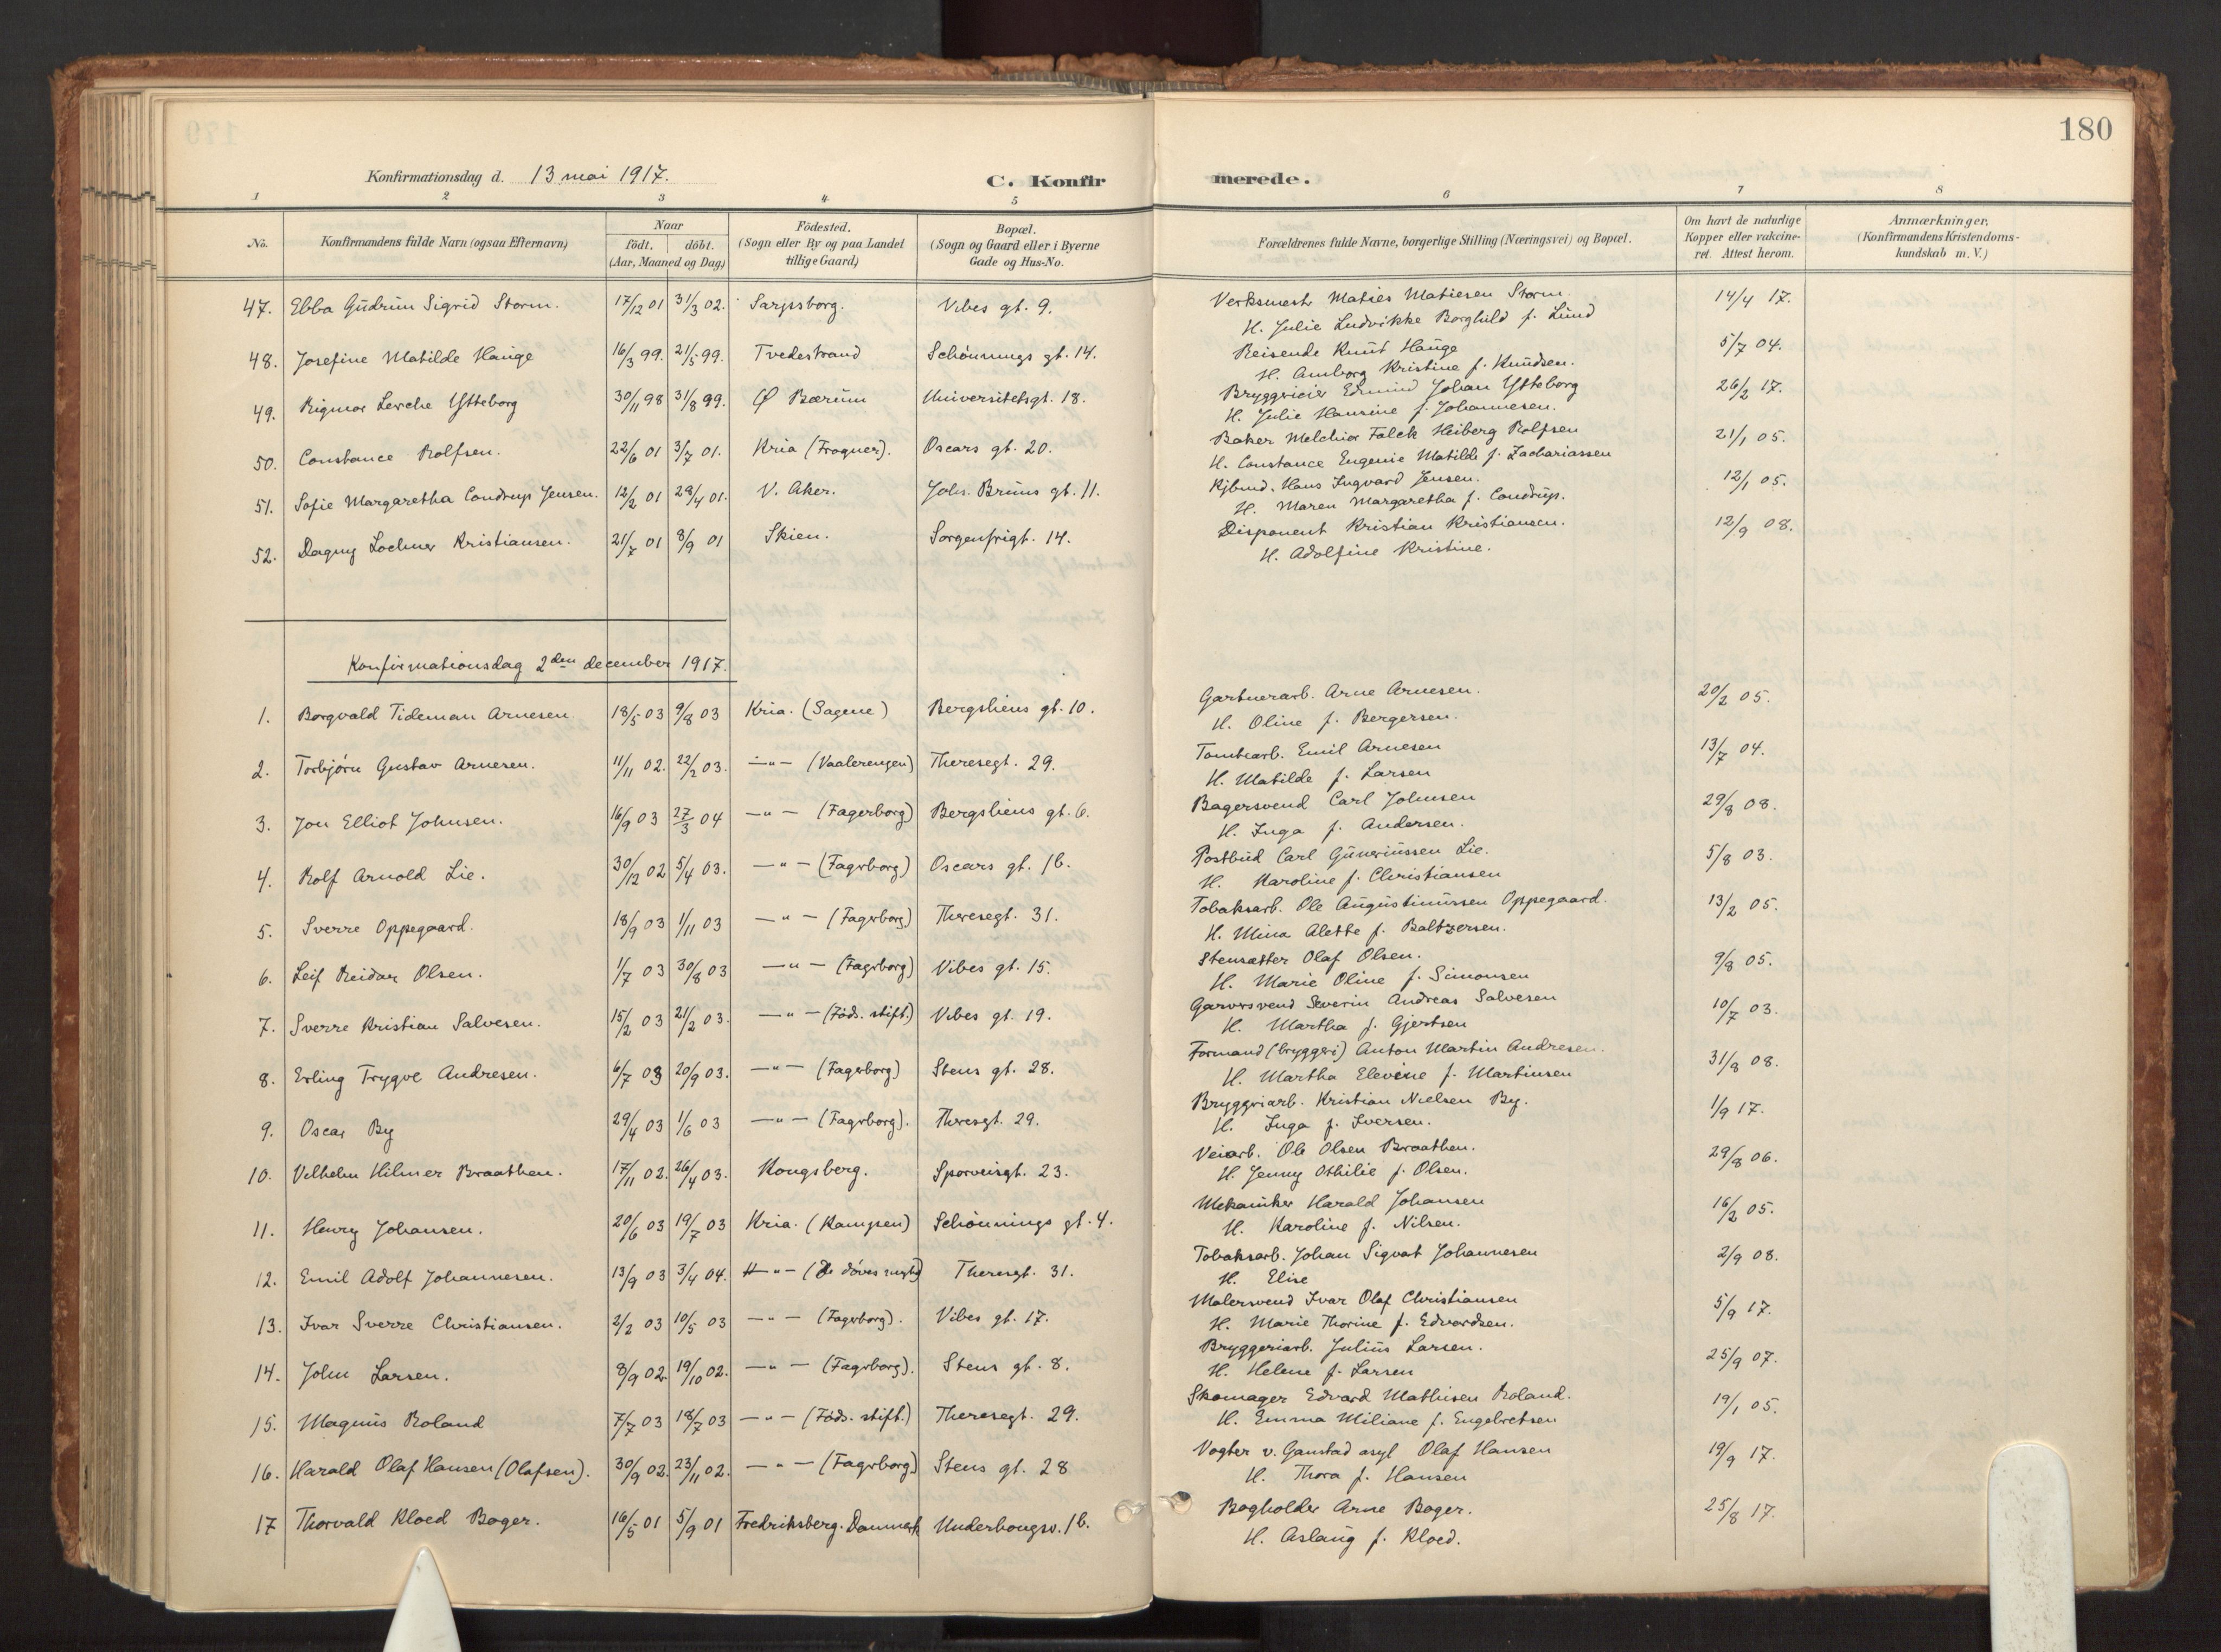 180
Konfirmationsdag d. 13 mai 1917.
C. Konfirmerede.
1 2 3 4 5 6 7 8
No. Konfirmandens fulde Navn (ogsaa Efternavn)
Naar
födt. döbt.
(Aar, Maaned og Dag)
Födested.
(Sogn eller By og paa Landet
tillige Gaard)
Bopæl.
(Sogn og Gaard eller i Byerne
Gade og Hus-No.
Forældrenes fulde Navne, borgerlige Stilling (Næringsvei) og Bopæl.
Om havt de naturlige
Kopper eller vakcine-
ret. Attest herom.
Anmærkninger,
(Konfirmandens Kristendoms-
kundskab m. V.)
47. Ebba Gudrun Sigrid Storm. 17/12 01 31/3 02. Sarpsborg. Vibes gt. 9. Verksmestr Maties Matiesen Storm 14/4 17.
H. Julie Ludvikke Borghild f. Lund
48. Josefine Matilde Hauge 16/3 99. 21/5 99. Tvedestrand Schönnings gt. 14. Reisende Knut Hauge 5/7 04.
H. Amborg Kristine f. Knudsen.
49. Rigmor Lerche Ytteborg 30/11 98 31/8 99. Ø Bærum Universitetsgt. 18. Bryggerieier Edmund Johan Ytteborg 26/2 17.
H. Julie Hansine f. Johannesen.
50. Constance Rolfsen. 22/6 01 3/7 01. Kria (Frogner). Oscars gt. 20. Baker Melchior Falck Heiberg Rolfsen 21/1 05.
H. Constance Eugenie Matilde f. Zachariassen
51. Sofie Margaretha Condrup Jensen. 12/2 01 28/4 01. V. Aker. Johs. Bruns gt. 11. Kjbmd. Hans Ingvard Jensen. 12/1 05.
H. Maren Margaretha f. Condrup.
52. Dagny Lochner Kristiansen. 21/7 01 8/9 01 Skien. Sorgenfrigt. 14. Disponent Kristian Kristiansen. 12/9 08.
H. Adolfine Kristine.
Konfirmationsdag 2den december 1917.
1. Borgvald Tideman Arnesen 18/5 03 9/8 03 Kria. (Sagene) Bergsliens gt. 10. Gartnerarb. Arne Arnesen. 20/2 05.
H. Oline f. Bergersen.
2. Torbjörn Gustav Arnesen. 11/11 02. 22/2 03. —"— (Vaalerengen) Theresegt. 29. Tomtearb. Emil Arnesen 13/7 04.
H. Matilde f. Larsen
3. Jon Elliot Johnsen. 16/9 03 27/3 04 —"— (Fagerborg) Bergsliens gt. 6. Bagersvend Carl Johnsen 29/8 08.
H. Inga f. Andersen.
4. Rolf Arnold Lie. 30/12 02 5/4 03. —"— (Fagrborg) Oscars gt. 1b. Postbud Carl Guneriussen Lie. 5/8 03.
H. Karoline f. Christiansen
5. Sverre Oppegaard. 18/9 03 1/11 03 —"— (Fagerborg) Theresegt. 31. Tobaksarb. Ole Augustinussen Oppegaard. 13/2 05.
H. Mina Alette f. Baltzersen.
6. Leif Reidar Olsen. 1/7 03 30/8 03 —"— (Fagrborg) Vibes gt. 15. Stensætter Olaf Olsen. 9/8 05.
H. Marie Oline f. Simonsen
7. Sverre Kristian Salvesen. 15/2 03 21/2 03. —"— (Föds. stift.) Vibes gt. 19. Garvrsvend Severin Andreas Salvesen 10/7 03.
H. Martha f. Gjertsen
8. Erling Trygve Andresen. 6/7 03 20/9 03. —"— (Fagerborg) Stens gt. 28. Formand (bryggeri) Anton Martin Andresen. 31/8 08.
H. Martha Elevine f. Martinsen
9. Oscar By 29/4 03 1/6 03 —"— (Fagrborg). Thresgt. 29. Bryggriarb. Kristian Nielsen By. 1/9 17.
H. Inga f. Iversen.
10. Vilhelm Hilmer Braathen. 17/11 02. 26/4 03. Kongsberg. Sporveisgt. 23. Veiarb. Ole Olsen Braathen. 29/8 06.
H. Jenny Othilie f. Olsen.
11. Henry Johansen. 20/6 03 19/7 03 Kria. (Kampen) Schönnings gt. 4. Mekaniker Harald Johansen 16/2 05.
H. Karoline f. Nilsen.
12. Emil Adolf Johannesen. 13/9 03 3/4 04. —"— (De döves Theresegt. 31. Tobaksarb. Johan Sigvat Johannesen 2/9 08.
H. Elise
13. Ivar Sverre Christiansen. 2/2 03 10/5 03 —"— (Fagerborg). Vibes gt. 17. Malersvend Ivar Olaf Christiansen 5/9 17.
H. Marie Thorine f. Edvardsen.
14. John Larsen. 8/9 02. 19/10 02. —"— (Fagrborg). Stens gt. 8. Bryggeriarb. Julius Larsen. 25/9 07.
H. Helene f. Larsen
15. Magnus Roland 7/7 03 18/7 03 —"— (Föds. stift.) Theresegt. 29. Skomager Edvard Mathisen Roland. 19/1 05.
H. Emma Miliane f. Engebretsen
16. Harald Olaf Hansen (Olafsen). 30/9 02. 23/11 02. —"— (Fagrborg) Stens gt. 28 Vogter v. Gaustad asyl Olaf Hansen 19/9 17.
H. Thora f. Hansen
17 Thorvald Kloed Bager. 16/5 01 5/9 01 Fredriksberg. Danmark Underhaugsv. 1b. Bogholder Arne Bager. 25/8 17.
H. Aslaug f. Kloed.